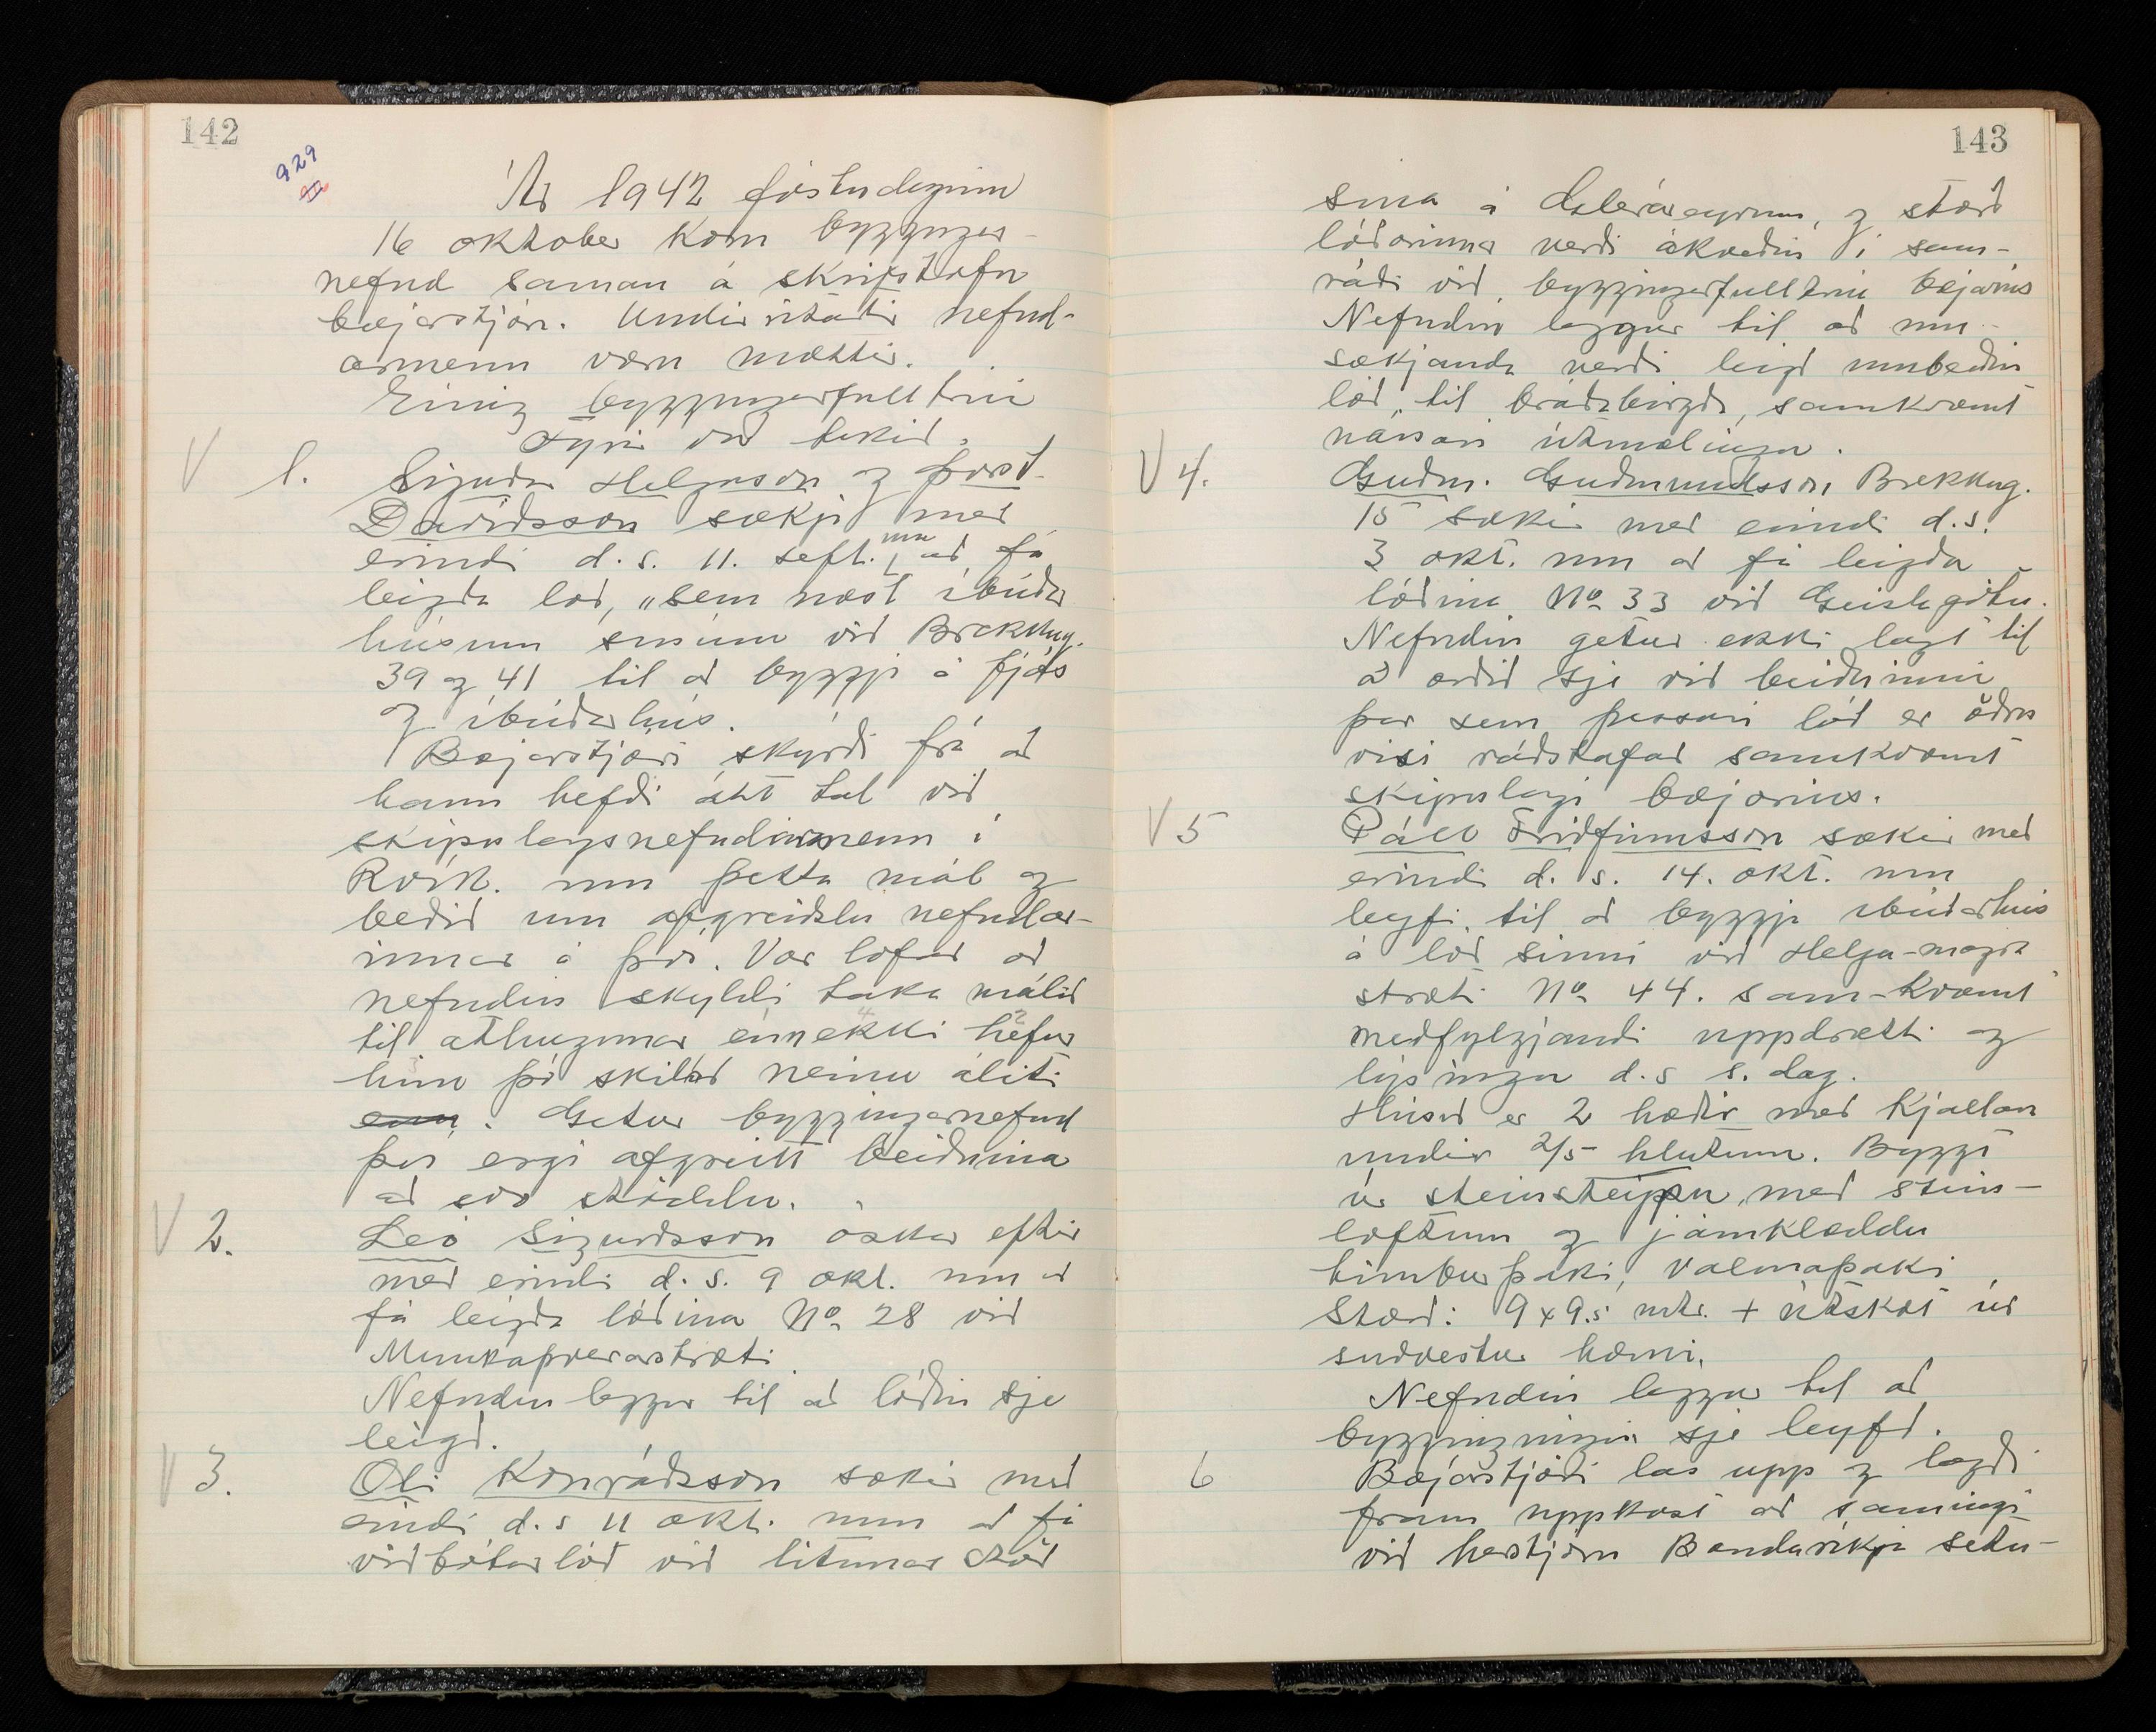 142
929
Ár 1942 föstudaginn
16 oktober kom bygginga-
nefnd saman á skrifstofu
bæjarstjóra. Undirritaðir nefnd-
armenn voru mættir.
Einnig byggingarfulltrúi
Fyrir var tekið.
V 1. Sigurður Helgason og Þorst.
Davíðsson sækja með
erindi d.s. 11. sept. um að fá
leigða lóð, „sem næst íbúðar
húsum sínum við Brekkug.
39 og 41 til að byggja á fjós
og íbúðarhús.
Bæjarstjóri skýrði frá að
hann hefði átt tal við
skipulagsnefndarmenn í
Rvík. um þetta mál og
beðið um afgreiðslu nefndar-
innar á því. Var lofað að
nefndin skyldi taka málið
til athugunar en ekki hefur
hún þó skilað neinu áliti
enn. Getur bygginganefnd
því eigi afgreitt beiðnina
að svo stöddu.
V 2. Leó Sigurðsson óskar eftir
með erindi d.s. 9 okt. um að
fá leigða lóðina No 28 við
Munkaþverárstræti
Nefndin leggur til að lóðin sje
leigð.
V 3. Óli Konráðsson sækir með
erindi d.s 11 okt. um að fá
viðbótarlóð við lifrar stöð
143
sína á Gleráreyrum, og stærð
lóðarinnar verði ákveðin í sam-
ráði við byggingarfulltrúa bæjarins
Nefndin leggur til að um-
sækjanda verði leigð umbeðin
lóð, til bráðabirgða, samkvæmt
nánari útmælingu.
V 4. Guðm. Guðmundsson Brekkug.
15 sækir með erindi d.s.
3 okt. um að fá leigða
lóðina No 33 við Geislagötu.
Nefndin getur ekki lagt til
að orðið sje við beiðninni
þar sem þessari lóð er öðru
vísi ráðstafað samkvæmt
skipulagi bæjarins.
V 5 Páll Friðfinnsson sækir með
erindi d.s. 14. okt. um
leyfi til að byggja íbúðarhús
á lóð sinni við Helga-magra
stræti No 44. sam-kvæmt
meðfylgjandi uppdrætti og
lýsingu d.s s. dag.
Húsið er 2 hæðir með kjallara
undir 2/5 hlutum. Byggt
úr steinsteypu, með stein-
loftum og járnklæddu
timburþaki, valmaþaki
Stærð: 9 x 9.5 mtr. + útskot úr
suðvestur horni.
Nefndin leggur til að
byggingin sje leyfð.
6 Bæjarstjóri las upp og lagði
fram uppkast að samningi
við herstjórn Bandaríkja setu-